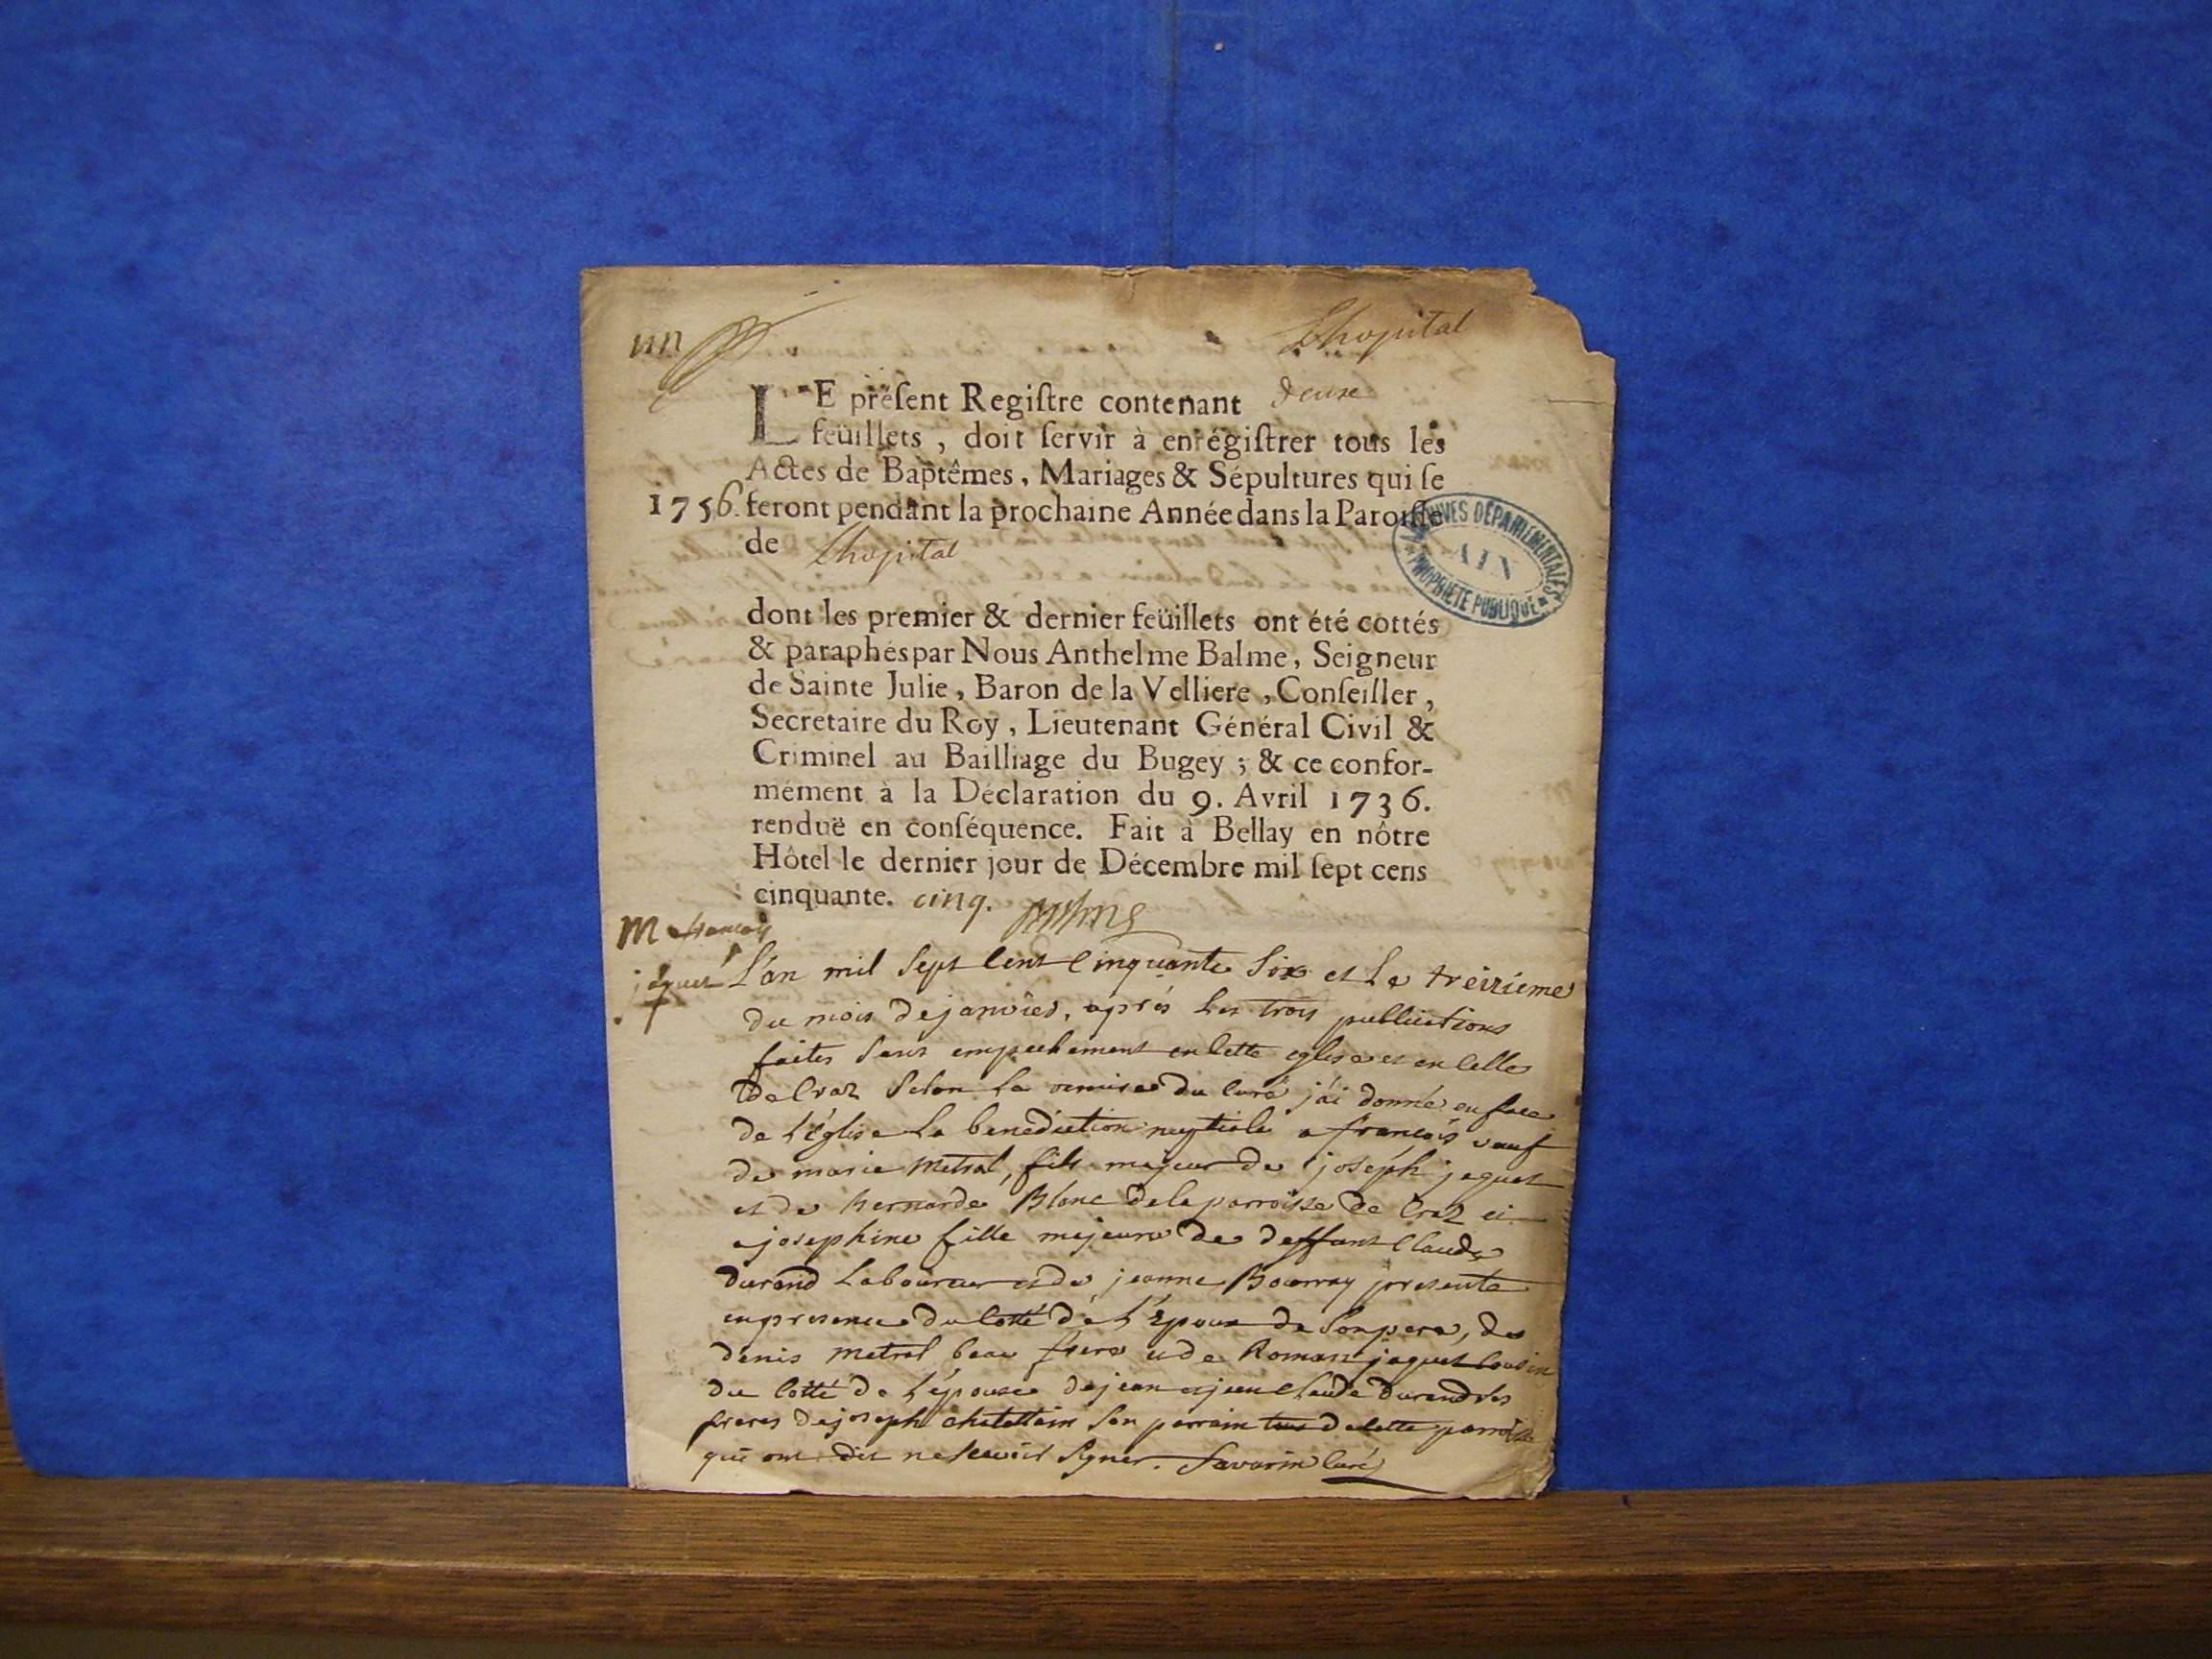 Lhopital
LE préſent Regiſtre contenant deux
feüillets, doit ſervir à enrégiſtrer tous les
Actes de Baptêmes, Mariages & Sépultures qui ſe
1756. feront pendant la prochaine Année dans la Paroiſſe
de Lhopital
ARCHIVES DÉPARTEMENTALES
AIN
PROPRIÉTÉ PUBLIQUE
dont les premier & dernier feüillets ont été cottés
& paraphés par Nous Anthelme Balme, Seigneur
de Sainte Julie, Baron de la Velliere, Conſeiller,
Secretaire du Roy, Lieutenant Général Civil &
Criminel au Bailliage du Bugey; & ce confor-
mément à la Déclaration du 9. Avril 1736.
renduë en conſéquence. Fait à Bellay en nôtre
Hôtel le dernier jour de Décembre mil ſept cens
cinquante. cinq.
M françois
jaquet
L'an mil sept cent cinquante six et le treizieme
du mois de janvier, aprés les trois publications
faites sans empechement en cette eglise et en celle
de Craz selon la remise du curé j'ai donné en face
de l'église la benediction nuptiale a françois veuf
de marie metral, fils majeur de joséph jaquet
et de bernarde Blanc de la parroisse de Craz et
a josephine fille majeure de deffunt Claude
durand laboureur et de jeanne presente
en presence du cotté de l'Epoux de son pere, de
denis metral beau frere et de Roman jaquet cousin
du cotté de l'épouse de jean et jean claude durand ses
freres de joseph chatellain son parrain tous de cette parroisse
qui ont dit ne scavoir signer. Savarin curé